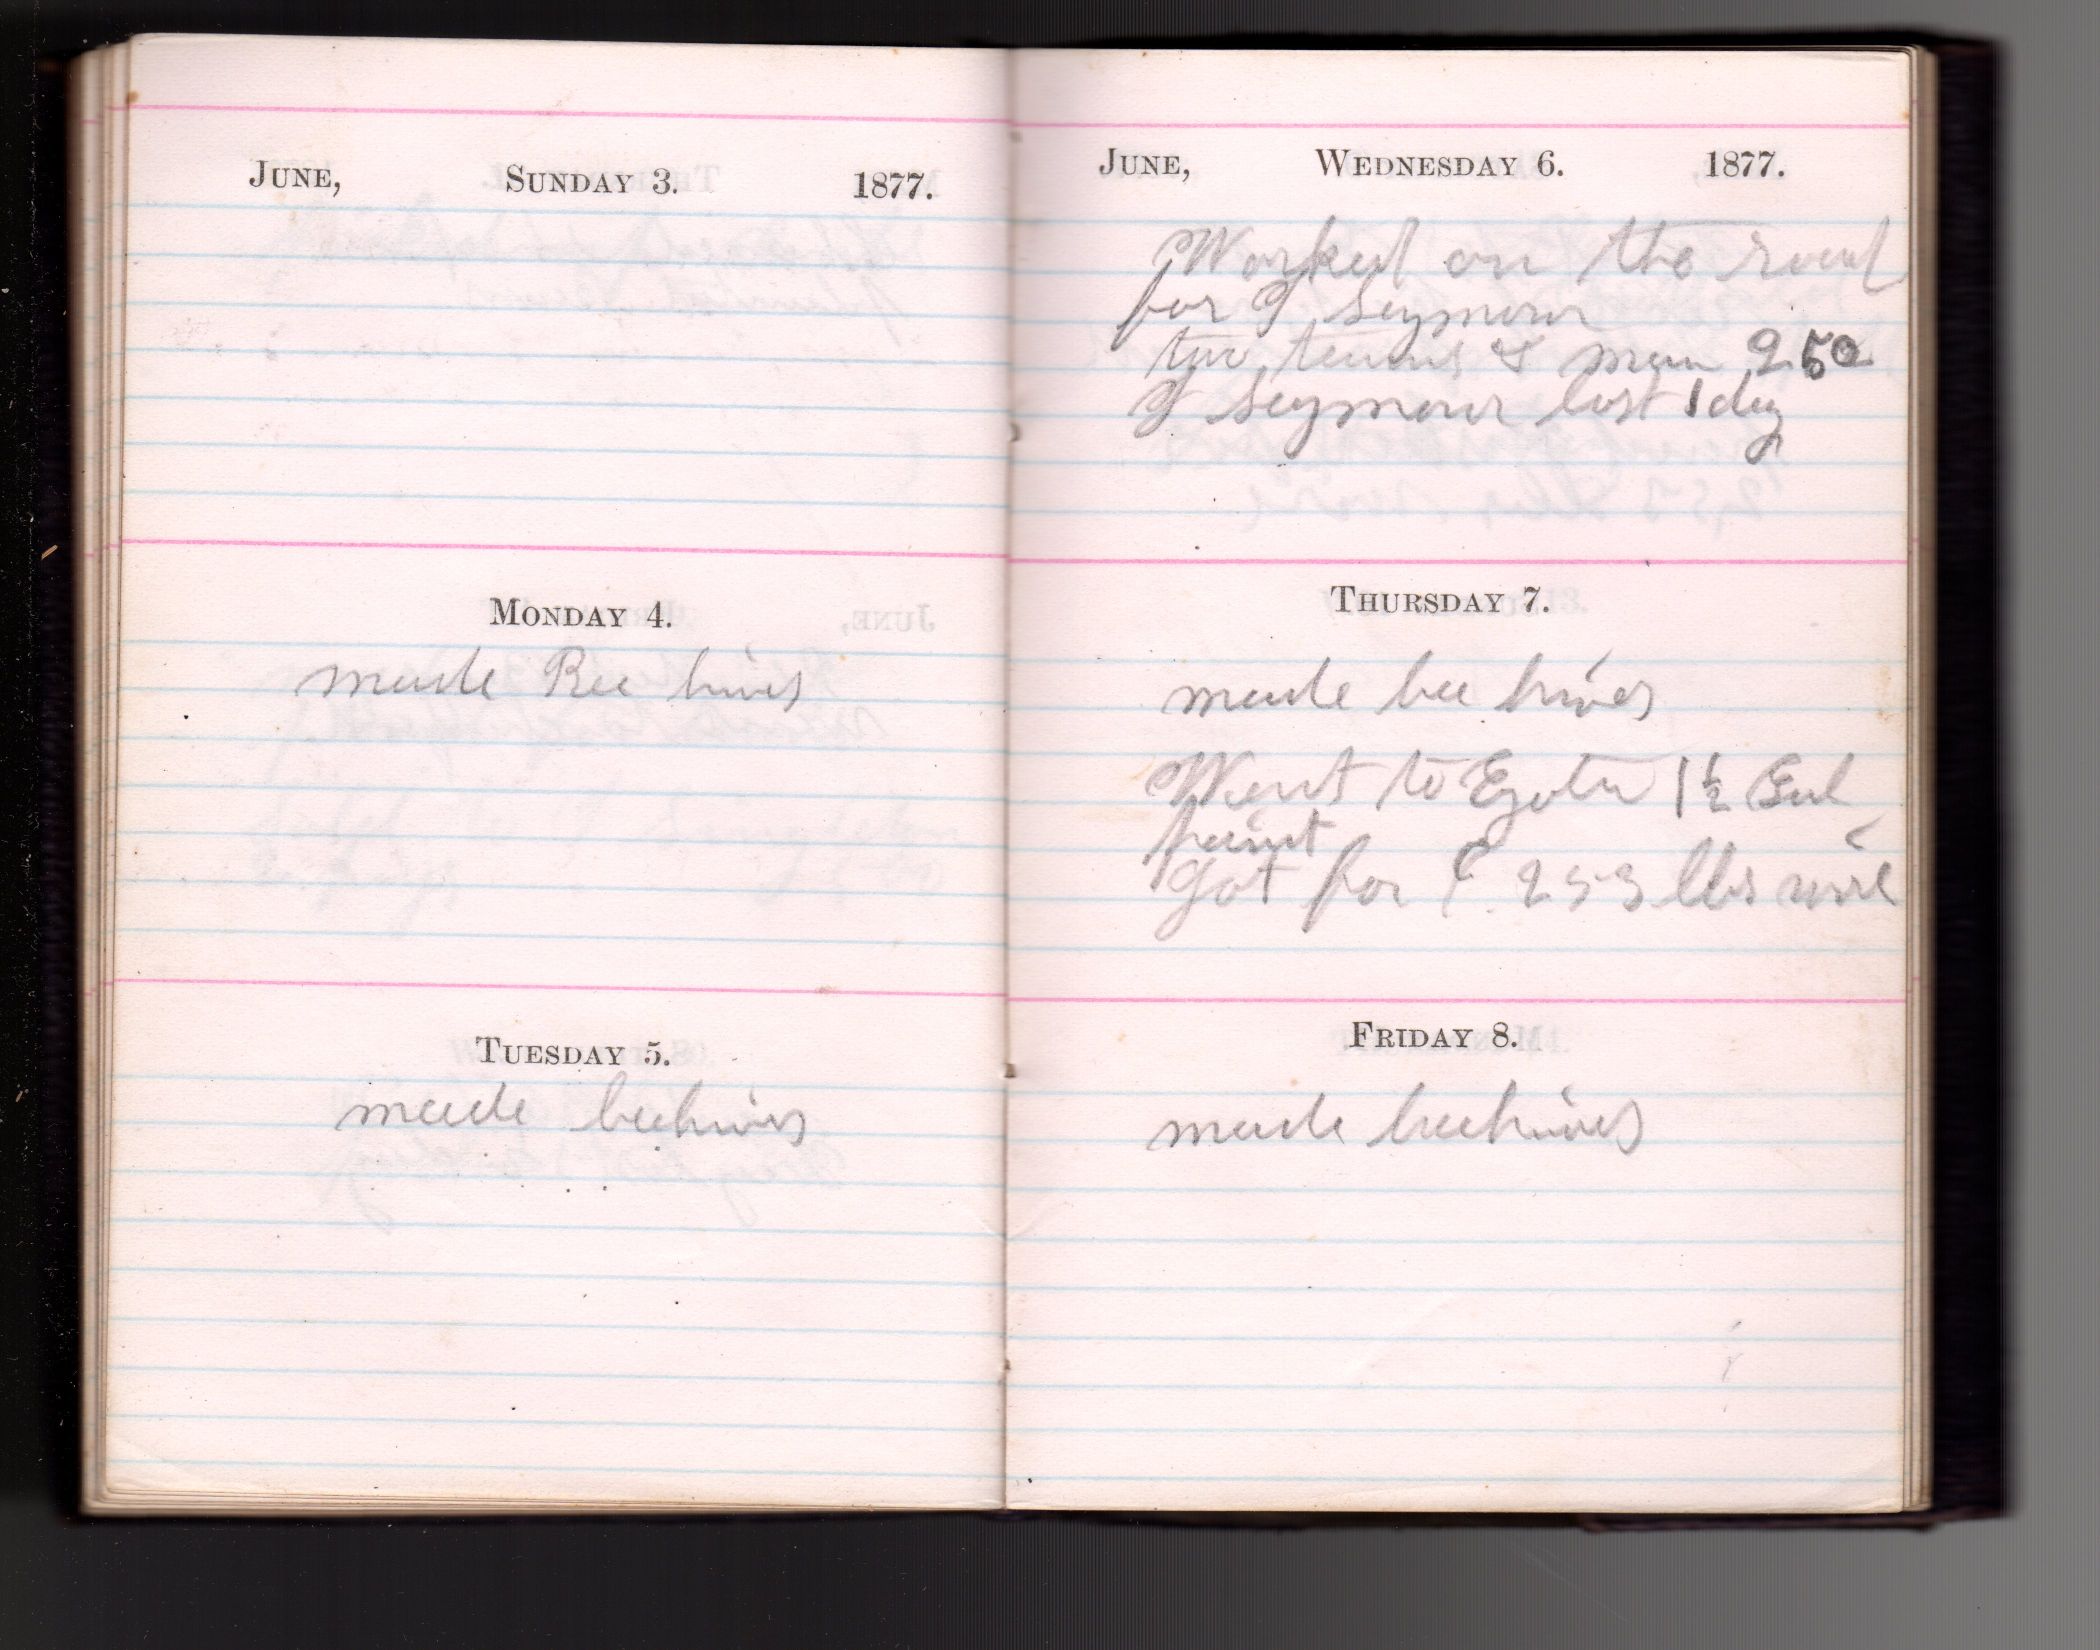 JUNE, SUNDAY 3. 1877.
MONDAY 4.
made Bee hives
TUESDAY 5.
made beehives
JUNE, WEDNESDAY 6. 1877.
Worked on the road
for J Seymour
two teams & man 2.50
J Seymour lost 1 day
THURSDAY 7.
made bee hives
Went to 1 1/2 Gal
paint
Got for 253 lbs wire
FRIDAY 8.
made beehives